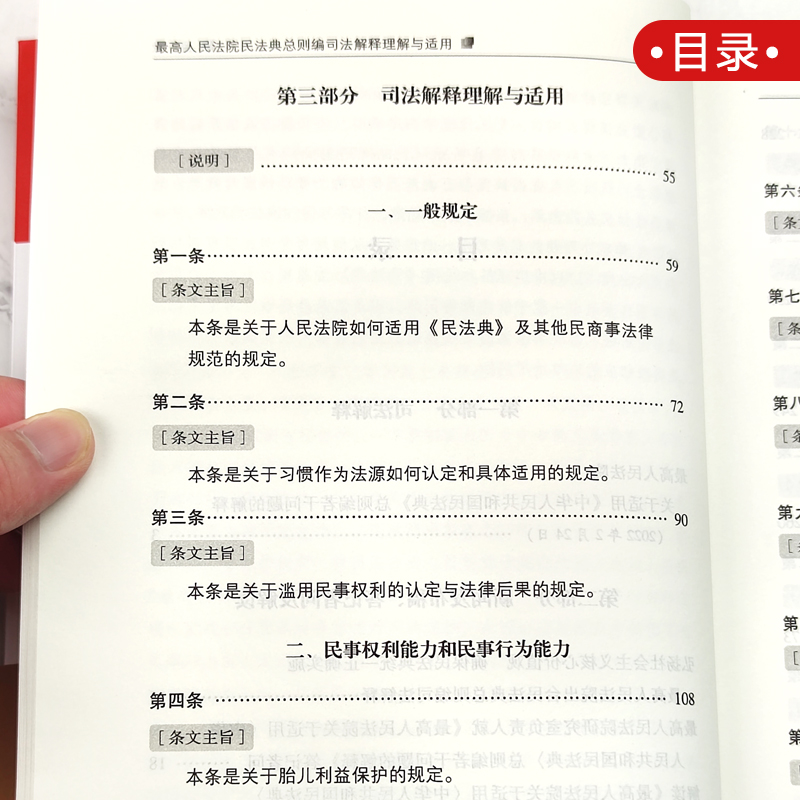 最高人民法院民法典总则编司法解释理解与适用
•目录•
第三部分 司法解释理解与适用
[说明] …… 55
一、一般规定
第一条 …… 59
[条文主旨]
本条是关于人民法院如何适用《民法典》及其他民商事法律
规范的规定。
第二条 …… 72
[条文主旨]
本条是关于习惯作为法源如何认定和具体适用的规定。
第三条 …… 90
[条文主旨]
本条是关于滥用民事权利的认定与法律后果的规定。
二、民事权利能力和民事行为能力
第四条 …… 108
[条文主旨]
本条是关于胎儿利益保护的规定。
第六
第七
第八